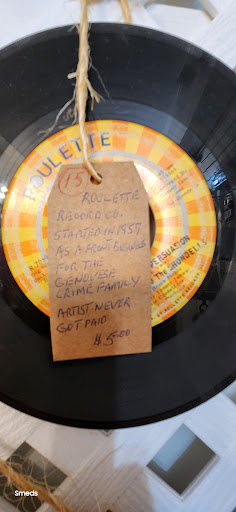 ROULETTE
15
ROULETTE
RECORD CO.
STARTED IN 1957
AS A FRONT BUSINESS
FOR THE
GENOVESE
CRIME FAMILY
ARTIST NEVER
GOT PAID
$5.00
PERSUASION
SHONDELLS
Smeds